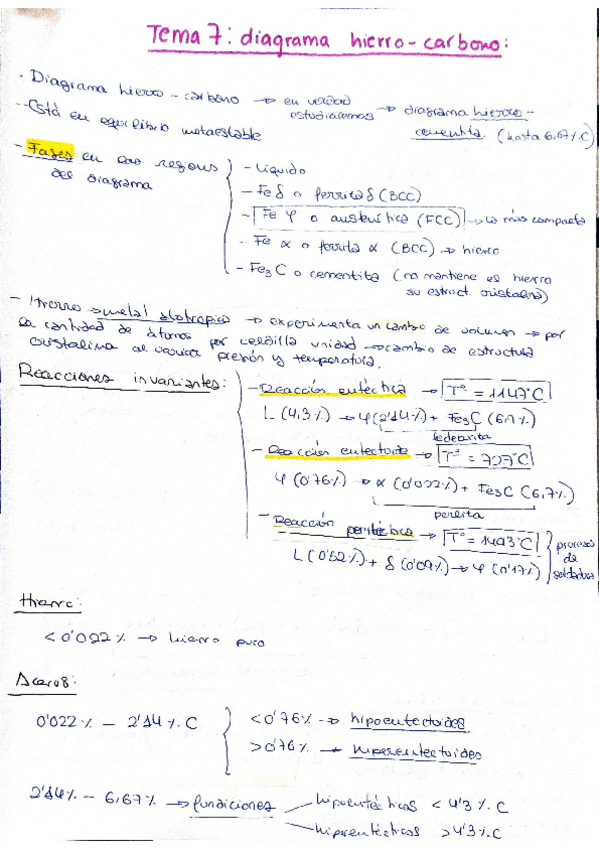 Tema 7: diagrama hierro-carbono:
· Diagrama hierro-carbono → en verdad estudiaremos → diagrama hierro-cementita (hasta 6,67% C)
- Está en equilibrio metaestable
- Fases en las regiones del diagrama
- Líquido
- Fe δ o ferrita δ (BCC)
- Fe φ o austenítica (FCC) → la más compacta
- Fe α o ferrita α (BCC) → hierro
- Fe3C o cementita (no mantiene el hierro su estruct. cristalina)
- Hierro → metal alotrópico → experimenta un cambio de volumen → por
la cantidad de átomos por celdilla unidad → cambio de estructura
cristalina al variar presión y temperatura.
Reacciones invariantes:
- Reacción eutéctica → Tª = 1147ºC
L (4,3%) → φ (2'14%) + Fe3C (6,7%)
ledeburita
- Reacción eutectoide → Tª = 727ºC
φ (0'76%) → α (0'022%) + Fe3C (6,7%)
perlita
- Reacción peritéctica → Tª = 1493ºC
L (0'52%) + δ (0'09%) → φ (0'17%)
proceso de soldadura
Hierro:
<0'022% → hierro puro
Aceros:
0'022% - 2'14% C
<0'76% → hipoeutectoides
>0'76% → hipereutectoides
2'14% - 6,67% → fundiciones
hipoeutécticas < 4'3% C
hipereutécticas > 4'3% C